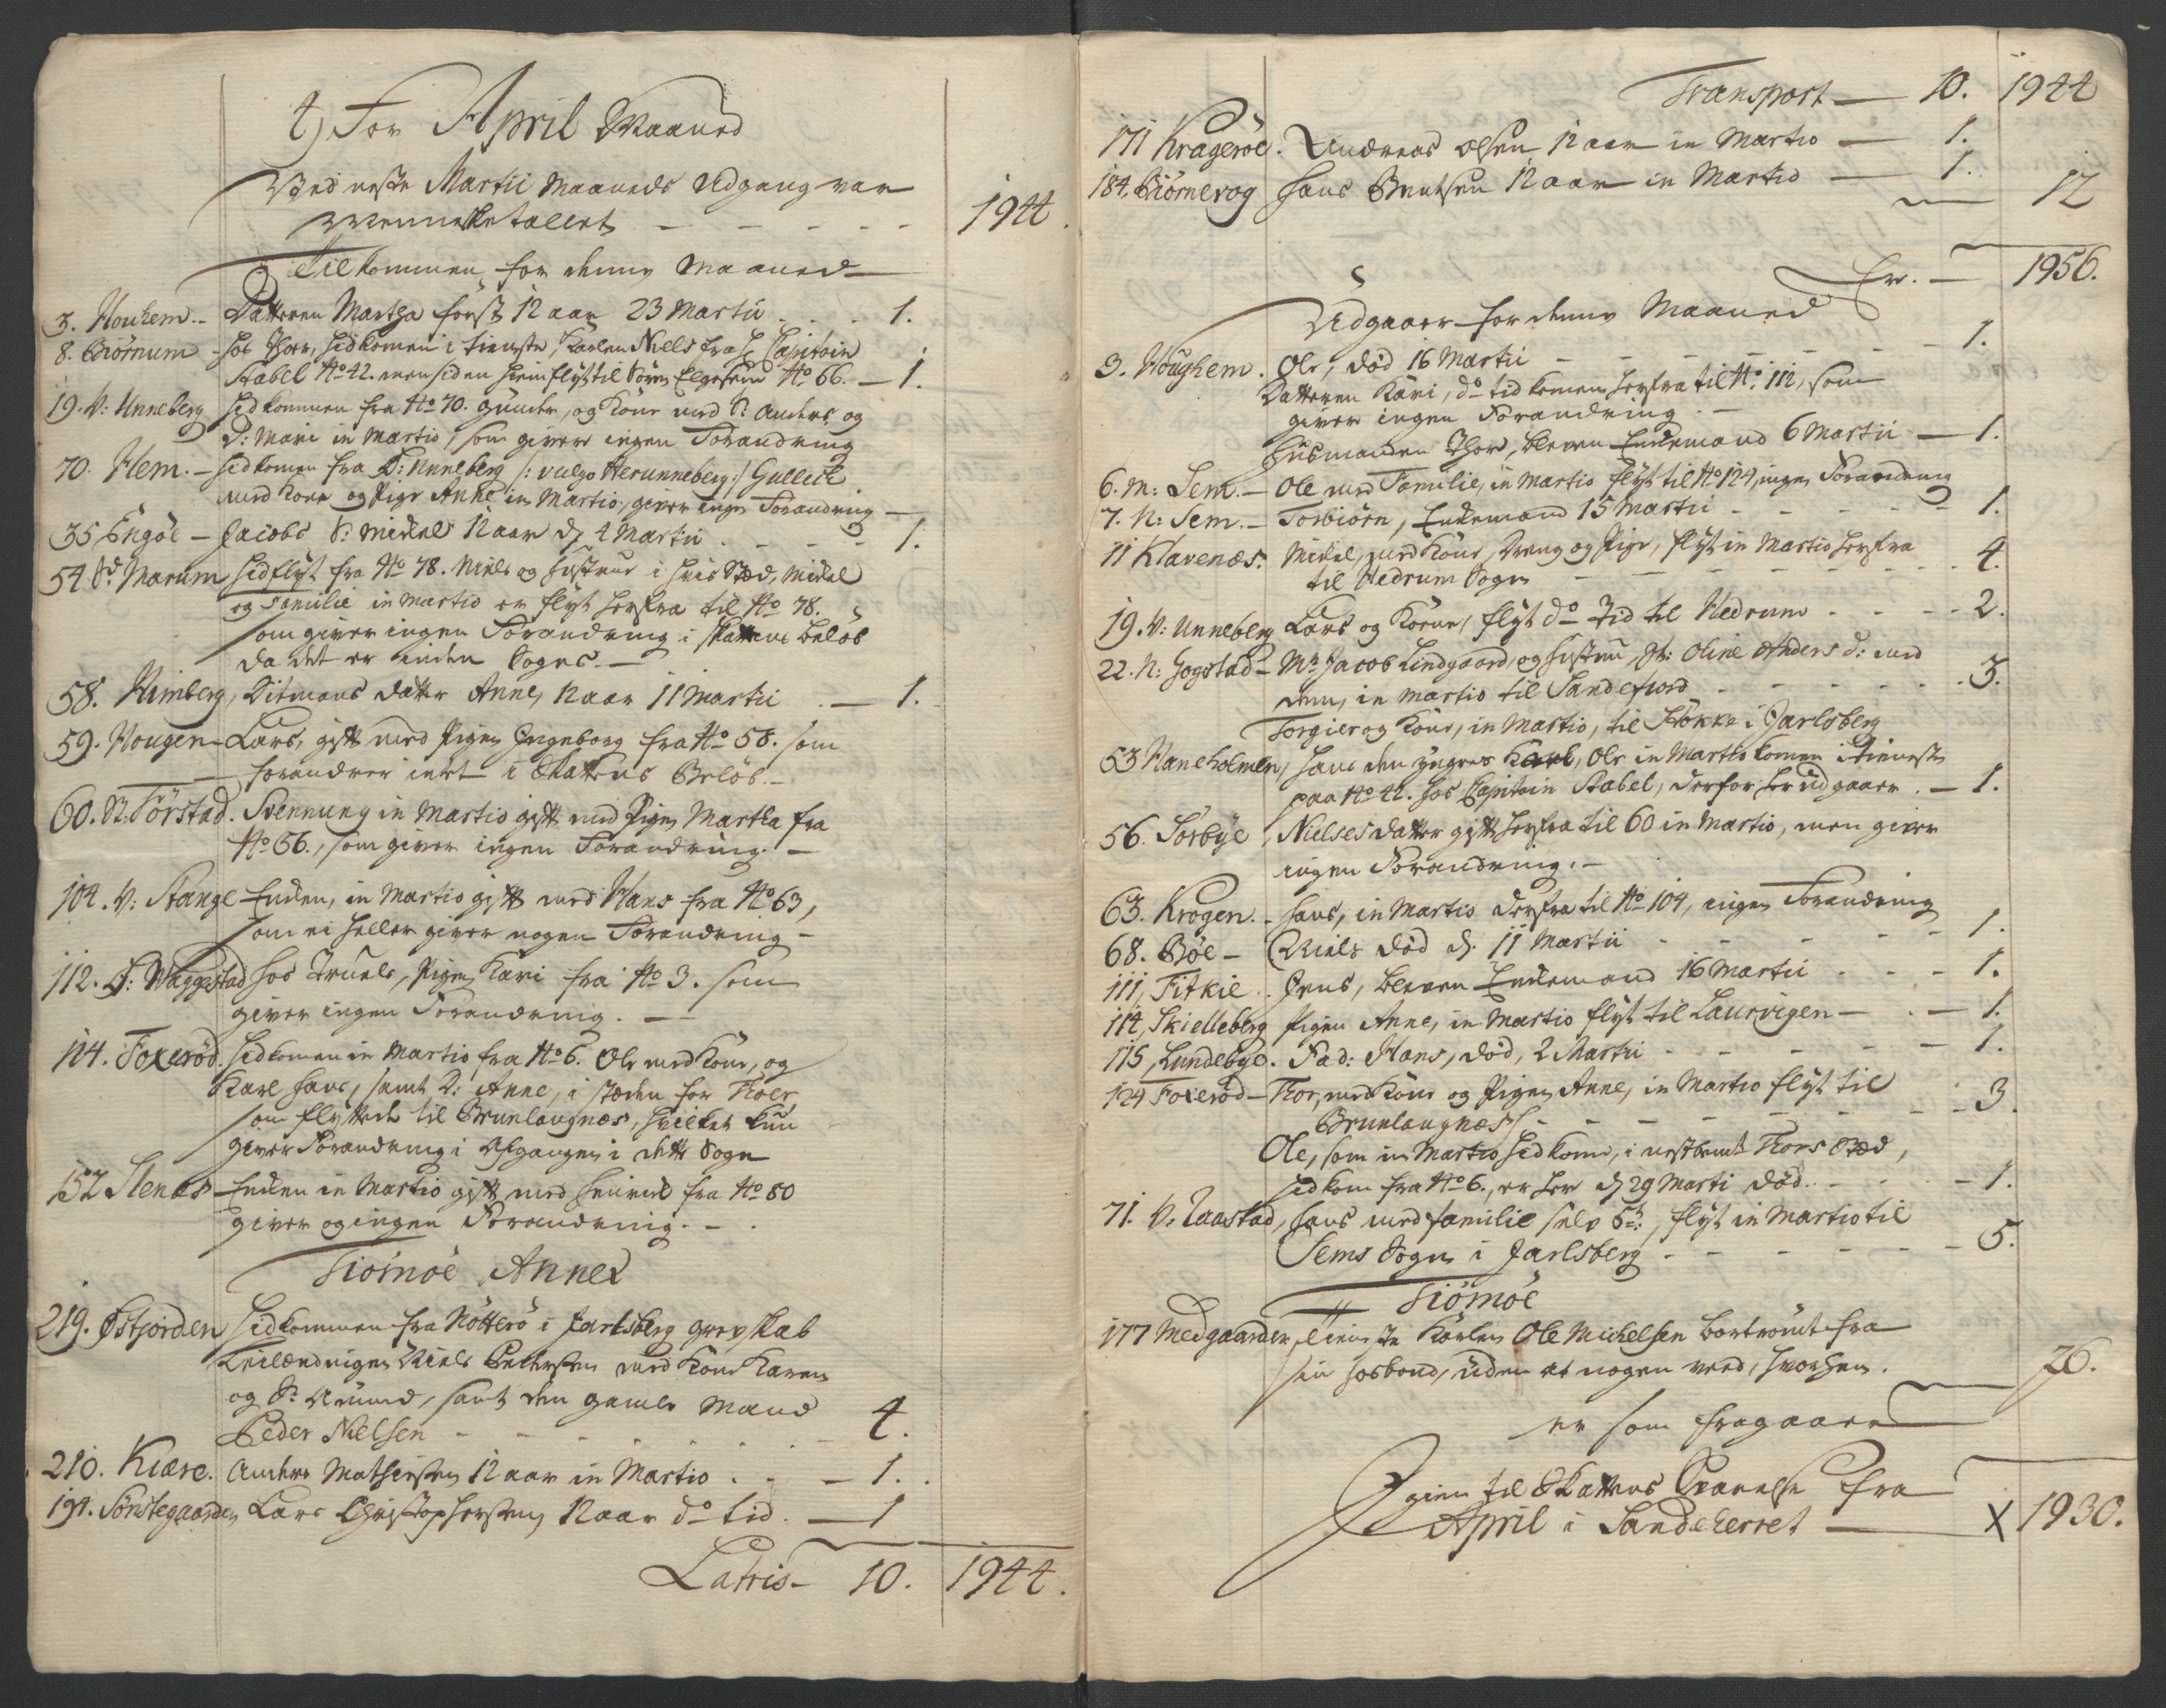 4) For April Maaned
Ved neste Martii Maaneds Udgang var
Mennisketallet - - - - - 1944.
Tilkommen for denne Maaned
3. Houhem - Datteren Martha først 12 aar 23 Martii - - - 1.
8. Biørnum - hos Thor, hidkomen i tieneste, Karlen Niels fra H Capitain
Stabel No 42. men siden hiemflyt til Søren Elgesem No 66. - 1.
19. V: Unneberg hidkommen fra No 70. Gunder, og Kone med S: Anders og
D: Mari in Martio, som giver ingen Forandring
70. Hem. - hidkomen fra Ø: Unneberg /: vulgo Herunneberg :/ Gullech
med Kone og Pige Anne in Martio, giver ingen Forandring -
35 Engöe - Jacobs S: Mickel 12 aar d 4 Martii - - - 1.
54 Sd Marum hidflyt fra No 78. Niels og Hustrue i hvis Stæd, Mickel
og Familie in Martio er flyt herfra til No 78.
som giver ingen Forandring i skattens beløb
da det er inden Sogns. -
58. Himberg, Ditmans datter Anne, 12 aar 11 Martii . - 1.
59. Hougen - Lars, gift med Pigen Ingeborg fra No 58. som
forandrer intet i Skattens Beløb. -
60. St: Förstad. Svennung in Martio gift med Pigen Martha fra
No 56., som giver ingen Forandring. -
104. V: Stange Enken, in Martio gift med Hans fra No 63,
som ei heller giver nogen Forandring -
112. Ø: Haggestad hos Truels, Pigen Kari fra No 3. som
giver ingen Forandring. -
124. Foxerød. hidkomen in Martio fra No 6. Ole med Kone, og
Karl Hans, samt D: Anne, i stæden for Thoer
som flyttede til Brunlaugnæs, hvilket kun
giver Forandring i Afgangen i dette Sogn
152 Stenes - Enken in Martio gift med fra No 80
giver og ingen Forandring. -
Tiömöe Annex
219. Østjorden hidkommen fra Nötterö i Jarlsberg grevskab
Leilændingen Niels Pedersen med Kone Karen
og S: Amund, samt den gamle Mand
Peder Nielsen - - - - - 4.
210. Kiære. Anders Mathiesen 12 aar in Martio . - 1.
194. Sønstegaarden Lars Christophersen 12 aar do tid. - 1
Latris - 10. 1944.
Transport - 10. 1944
171 Krageröe. Andreas Olsen 12 aar in Martio - 1.
184. Biörnevog Hans Bentsen 12 aar in Martio - 1. 12
Er. - 1956.
Udgaaer for denne Maaned
3. Houghem. Ole, død 16 Martii - - - - - 1.
Datteren Kari, do tid komen herfra til No 112, som
giver ingen Forandring. -
Huusmanden Thor, bleven Enkemand 6 Martii - 1.
6. M: Sem. - Ole med Familie, in Martio flyt til No 124, ingen Forandring
7. N: Sem. - Torbiörn, Enkemand 15 Martii - - - - - 1.
11 Klavenæs. Mickel, med Kone, Dreng og Pige, flyt in Martio herfra
til Hedrum Sogn - - - - - 4.
19. V: Unneberg Lars og Kone, flyt do Tid til Hedrum - - - 2.
22. N: Gogstad - Mr Jacob Lindgaard, og Hustrue, St: Oline Anders d: med
dem, in Martio til Sandefiord - - - - 3.
Torgier og Kone, in Martio, til Stokke i Jarlsberg
53 Haneholmen, Hans den yngres Karl, Ole in Martio komen i tieneste
paa No 42. hos Capitain Stabel, derfor her udgaaer. - 1.
56. Sörbye, Nielses datter gift herfra til 60 in Martio, men giver
ingen Forandring. -
63. Krogen. - Hans, in Martio derfra til No 104, ingen Forandring
68. Böe - Niels död d. 11 Martii - - - - - 1.
111, Fitkie . Jens, bleven Enkemand 16 Martii - - - 1.
114, Skielleberg Pigen Anne, in Martio flyt til Laurvigen - . - 1.
115, Lundebye. Fad: Hans, död, 2 Martii - - - - - 1.
124 Foxeröd - Thor, med Kone og Pigen Anne, in Martio flyt til
Brunlaugnæs - - - - - 3.
Ole, som in Martio hidkom, i nestbemt Thors Stæd,
hidkom fra No 6., er her d 29 Marti död. - - 1.
71. V: Raastad, Hans med familie selv 5te, flyt in Martio til
Sems Sogn i Jarlsberg - - - - - 5.
Tiömöe
177 Medgaarden, tieneste Karlen Ole Michelsen bortrömt fra
sin Hosbond, uden at nogen veed, hvorhen. 26.
er som fragaaer
Igien til Skattens Svarelse fra
April i Sandeherret - X 1930.